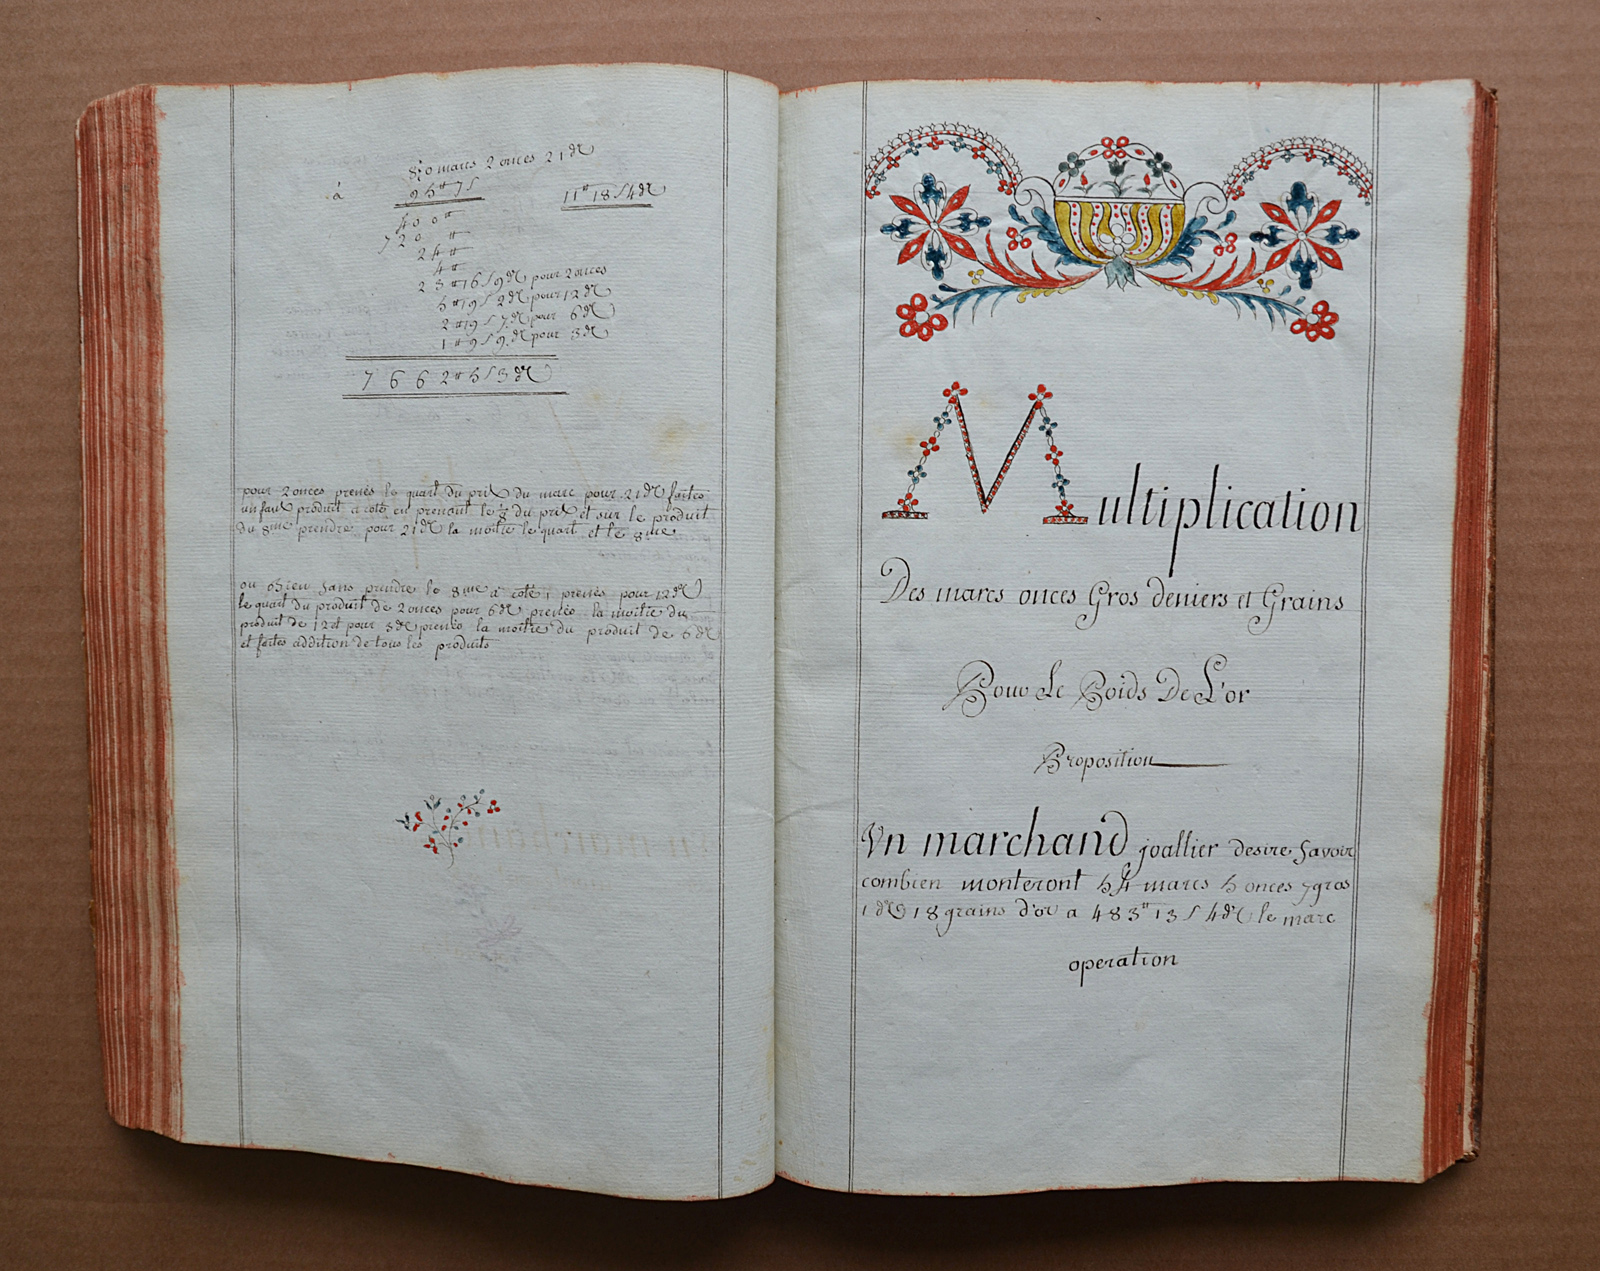 80 marcs 2 onces 21 dr
à 95# 7s 11# 18s 4dr
400#
720 #
24#
4#
23#16s9dr pour 2 onces
5#19s 2dr pour 12dr
2#19s 7dr pour 6dr
1#9s 9dr pour 3dr
7662#5s3dr
pour 2 onces prenés le quart du prix du marc pour 21dr faites
un faux produit a coté en prenant le 1/8 du prix et sur le produit
du 8me prendre pour 21dr la moitié le quart et le 8me
ou bien sans prendre le 8me a coté prenés pour 12dr
le quart du produit de 2 onces pour 6dr prenés la moitié du
produit de 12 et pour 3dr prenés la moitié du produit de 6dr
et faites addition de tous les produits
Multiplication
Des marcs onces Gros deniers et Grains
Pour Le Poids De L'or
Proposition
Un marchand joallier desire savoir
combien monteront 54 marcs 5 onces 7 gros
1 dr 18 grains d'or a 483# 13s 4dr le marc
operation